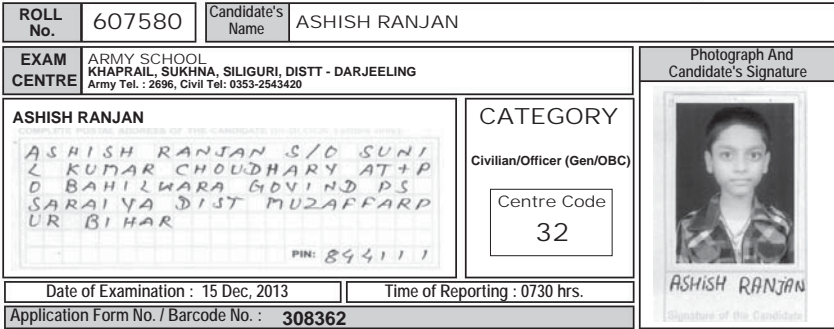 ROLL No. 607580 Candidate's Name ASHISH RANJAN
EXAM CENTRE
ARMY SCHOOL
KHAPRAIL, SUKHNA, SILIGURI, DISTT - DARJEELING
Army Tel. : 2696, Civil Tel: 0353-2543420
Photograph And
Candidate's Signature
ASHISH RANJAN
COMPLETE POSTAL ADDRESS OF THE CANDIDATE
ASHISH RANJAN S/O SUNI
L KUMAR CHOUDHARY AT+P
O BAHILWARA GOVIND PS
SARAIYA DIST MUZAFFARP
UR BIHAR
PIN: 844111
CATEGORY
Civilian/Officer (Gen/OBC)
Centre Code
32
ASHISH RANJAN
Signature of the Candidate
Date of Examination : 15 Dec, 2013 Time of Reporting : 0730 hrs.
Application Form No. / Barcode No. : 308362